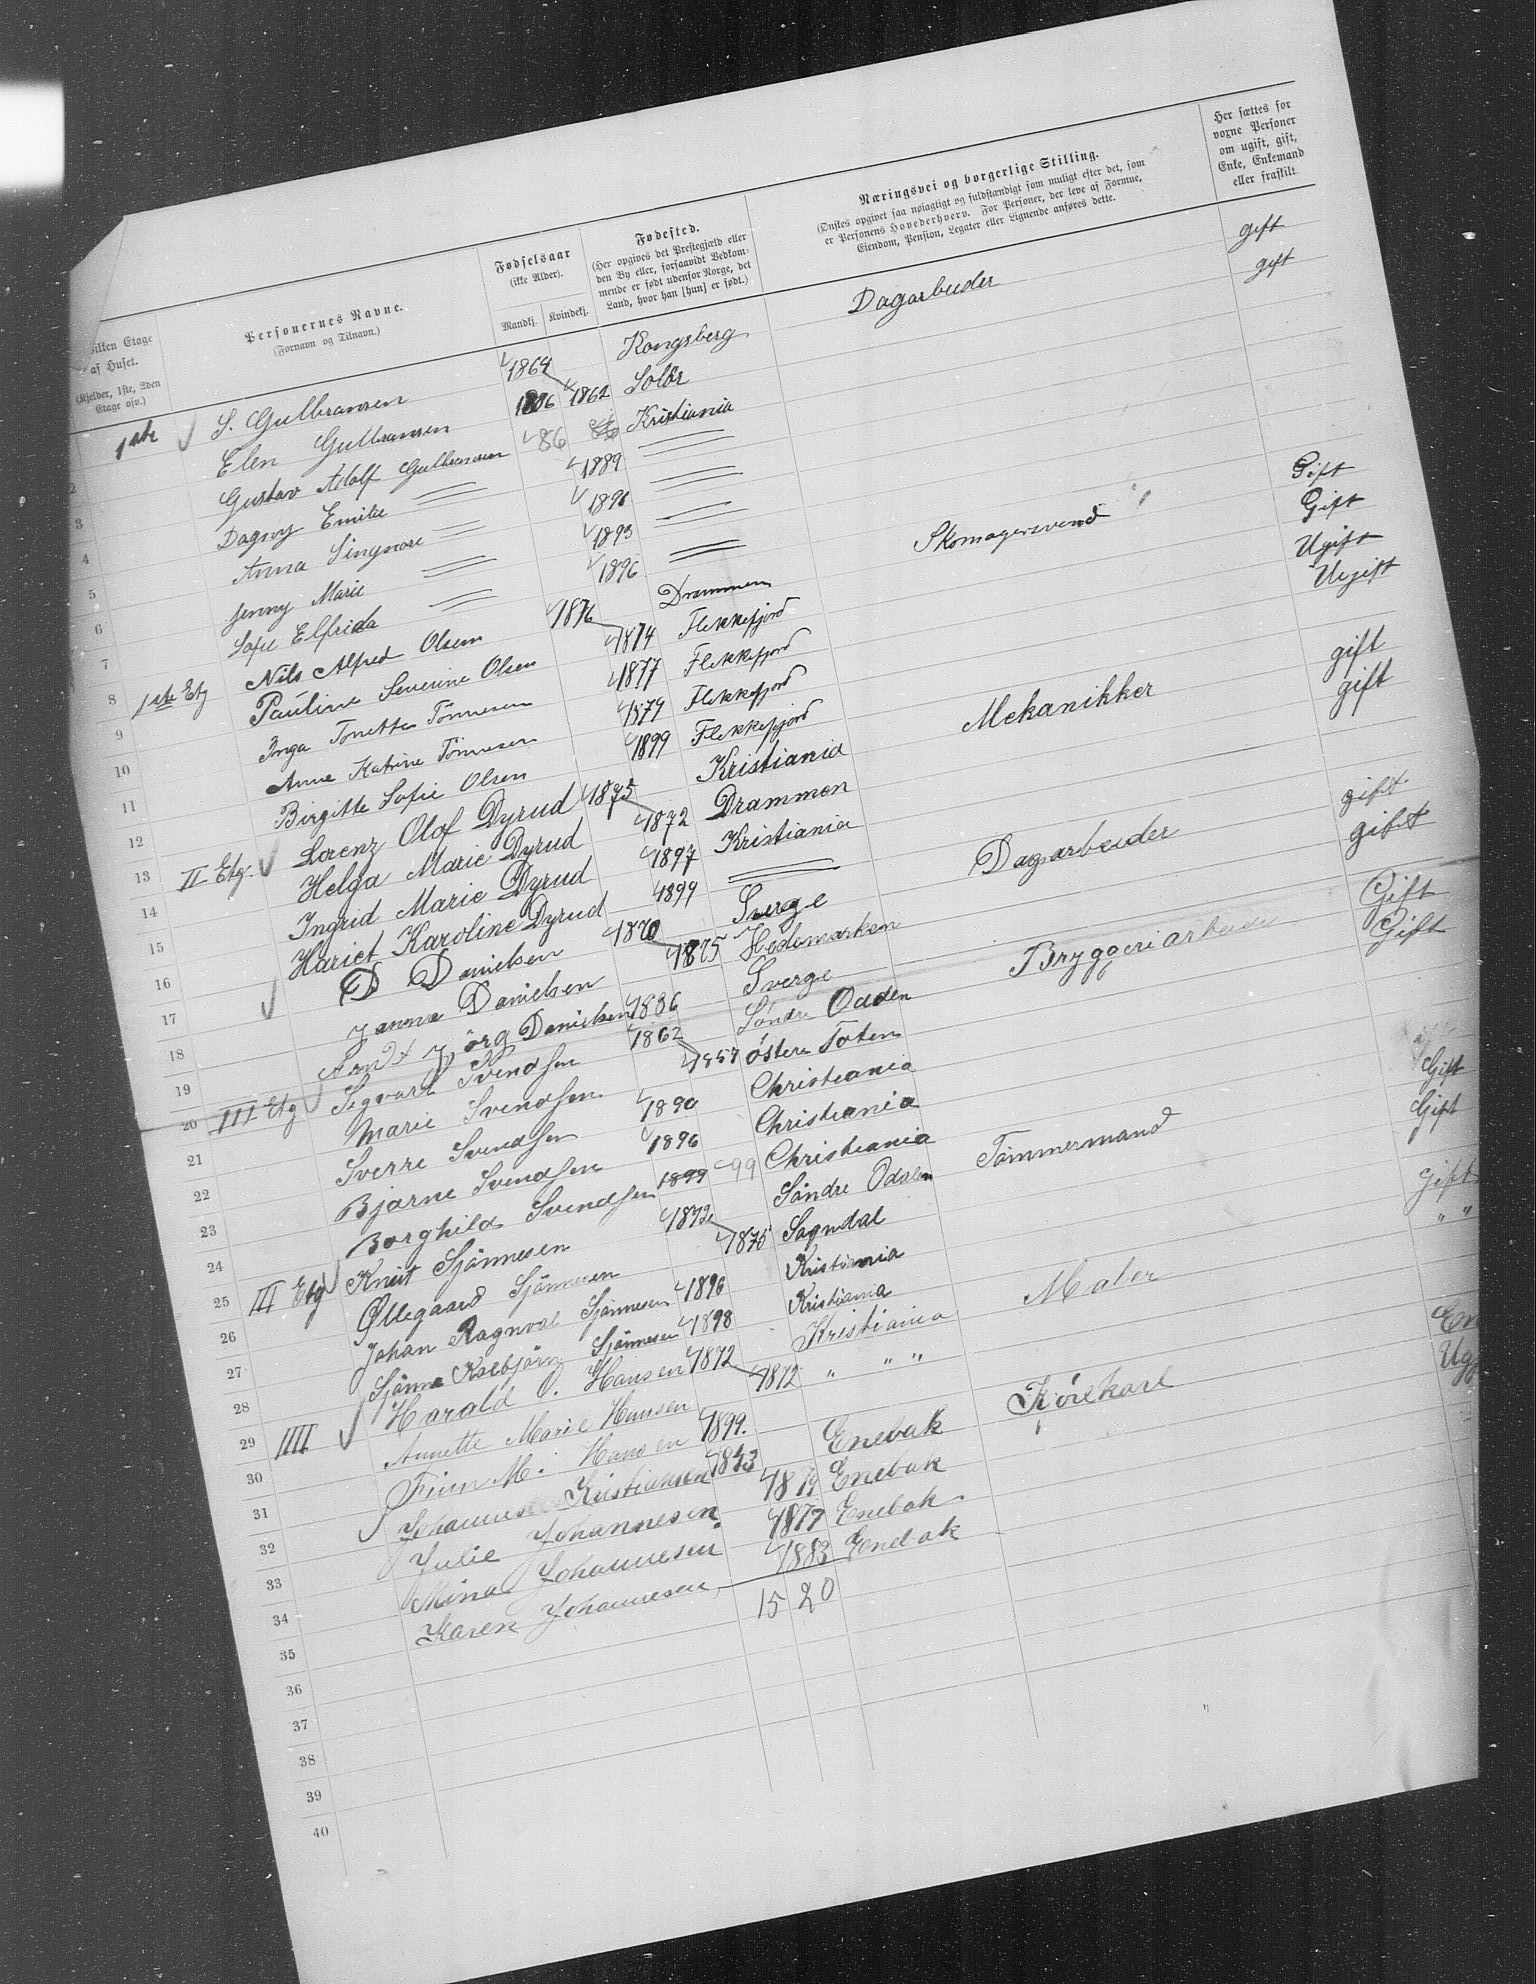 ilken Etage af Huset. (Kjelder, 1ste, 2den Etage osv.)
Personernes Navne. (Fornavn og Tilnavn.)
Fødselsaar (ikke Alder). Mandkj. Kvindekj.
Fødested. (Her opgives det Prestegjæld eller den By eller, forsaavidt Vedkommende er født udenfor Norge, det Land, hvor han [hun] er født.)
Næringsvei og borgerlige Stilling. (Ønskes opgivet saa nøiagtigt og fuldstændigt som muligt efter det, som er Personens Hovederhverv. For Personer, der leve af Formue, Eiendom, Pension, Legater eller Lignende anføres dette.
Her sættes for voxne Personer om ugift, gift, Enke, Enkemand eller fraskilt.
1ste S. Gulbransen 1864 Kongsberg Dagarbeider gift
2 Elen Gulbransen 1862 Solör gift
3 Gustav Adolf Gulbransen 1886 86 Kristiania
4 Dagny Emilie 1889
5 Anna Singnora 1891
6 Jenny Marie 1893
7 Sofie Elfrida 1896
8 1ste Etg Nils Alfred Olsen 1876 Drammen Skomagersvend Gift
9 Pauline Severine Olsen 1874 Flekkefjord Gift
10 Inga Tonette Tönnesen 1877 Flekkefjord Ugift
11 Anne Katrine Tönnesen 1879 Flekkefjord Ugift
12 Birgitte Sofie Olsen 1899 Flekkefjord
13 II Etg. Lorenz Olaf Dyrud 1875 Kristiania Mekanikker gift
14 Helga Marie Dyrud 1872 Drammen gift
15 Ingrid Marie Dyrud 1897 Kristiania
16 Hariet Karoline Dyrud 1899
17 D Danielsen 1870 Sverge Dagarbeider gift
18 Janna Danielsen 1875 Hedemarken gift
19 Arndt Jörg Danielsen 1886 Sverge
20 III Etg Sigvart Svendsen 1862 Söndre Odden Bryggeriarbeider Gift
21 Marie Svendsen 1857 Östere Toten Gift
22 Sverre Svendsen 1890 Christiania
23 Bjarne Svendsen 1896 Christiania
24 Borghild Svendsen 1899 99 Christiania
25 III Etg Knut Sjönnesen 1872 Söndre Odalen Tömmermand Gift
26 Øllegaard Sjönnesen 1875 Sogndal Gift
27 Johan Ragnval Sjönnesen 1896 Kristiania
28 Sjönne Kolbjörn Sjönnesen 1898 Kristiania
29 IIII Harald O. Hansen 1872 Kristiania Maler gift
30 Annette Marie Hansen 1872 " " " " "
31 Finn M. Hansen 1899.
32 Johannes Kristiansen 1843 Enebak Körekarl En
33 Julie Johannesen 1874 Enebak Ug
34 Mina Johannesen 1877 Enebak
35 Karen Johannesen 1883 Enebak
15 20
36
37
38
39
40